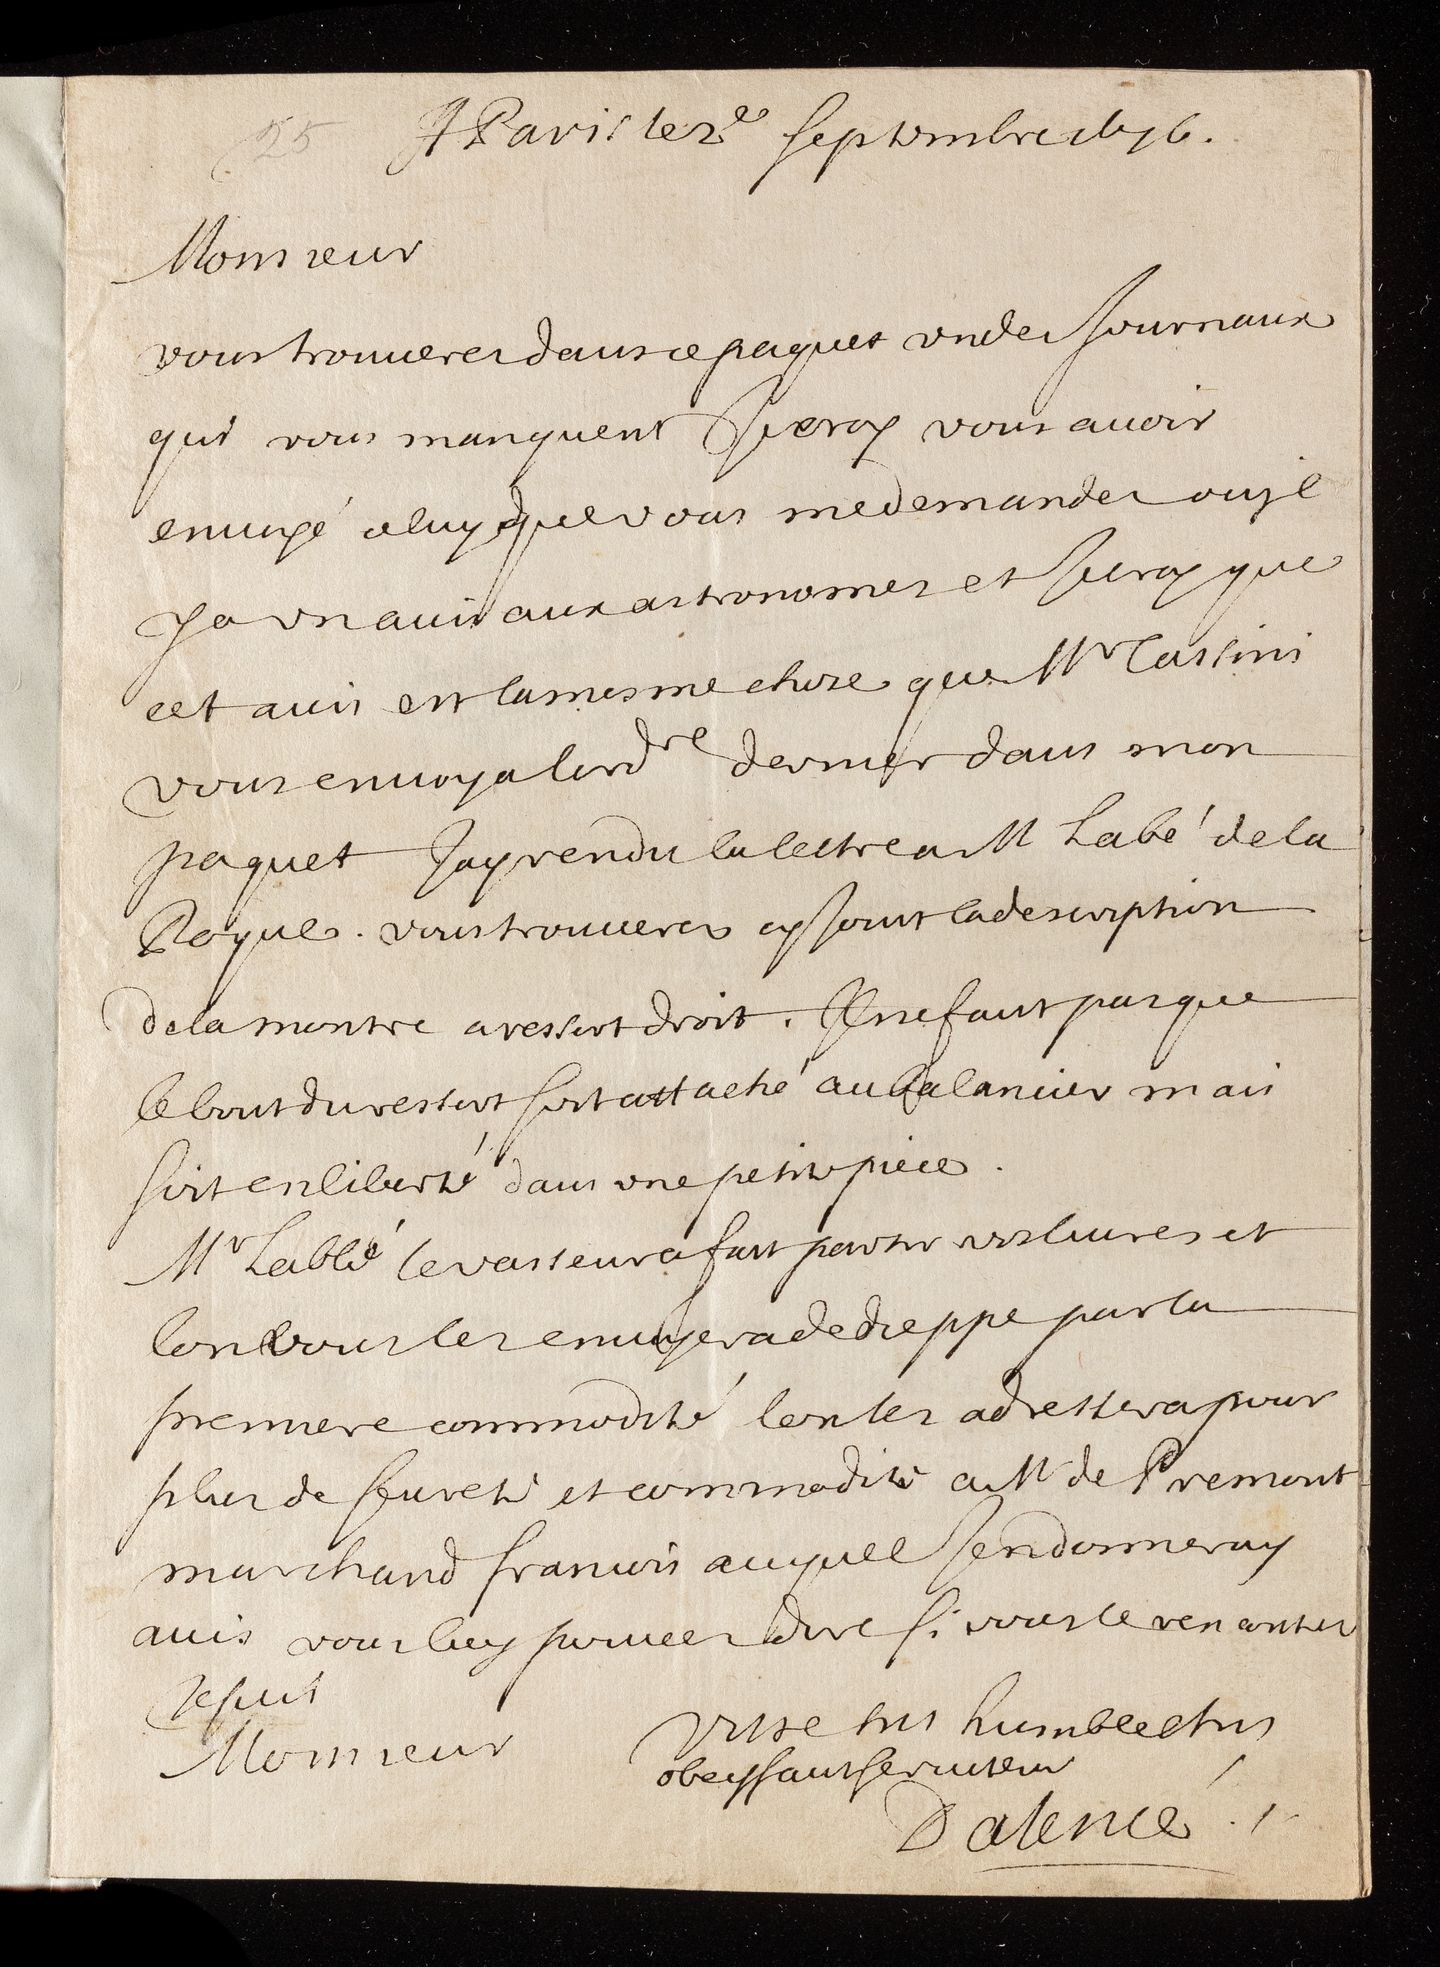 25
A Paris le 2e septembre 1676.
Monsieur
vous trouuerez dans ce paquet un des Journaux
qui vous manquent Je croy vous auoir
enuoyé celuy que vous me demandez ou jl
y a vn auis aux astronomes et Je croy que
cet auis est la mesme chose que Mr Cassini
vous enuoya lordre dernier dans mon
paquet Jay rendu la lettre a M Labé de la
Roque. vous trouuerez cy Joint la description
de la montre a ressort droit. Il ne faut pas que
le bout du ressort soit attaché au balancier mais
soit en liberté dans vne petite piece.
Mr Labbé le vasseur a fait partir vos liures et
lon vous les enuoyera de dieppe par la
premiere commodité lon les adressera pour
plus de seureté et commodité a Mr de Premont
marchand francois auquel Jen donneray
auis vous luy pouuez dire si vous le rencontrez
Je suis
Monsieur
vostre tres humble et tres
obeyssant seruiteur
Dalencé